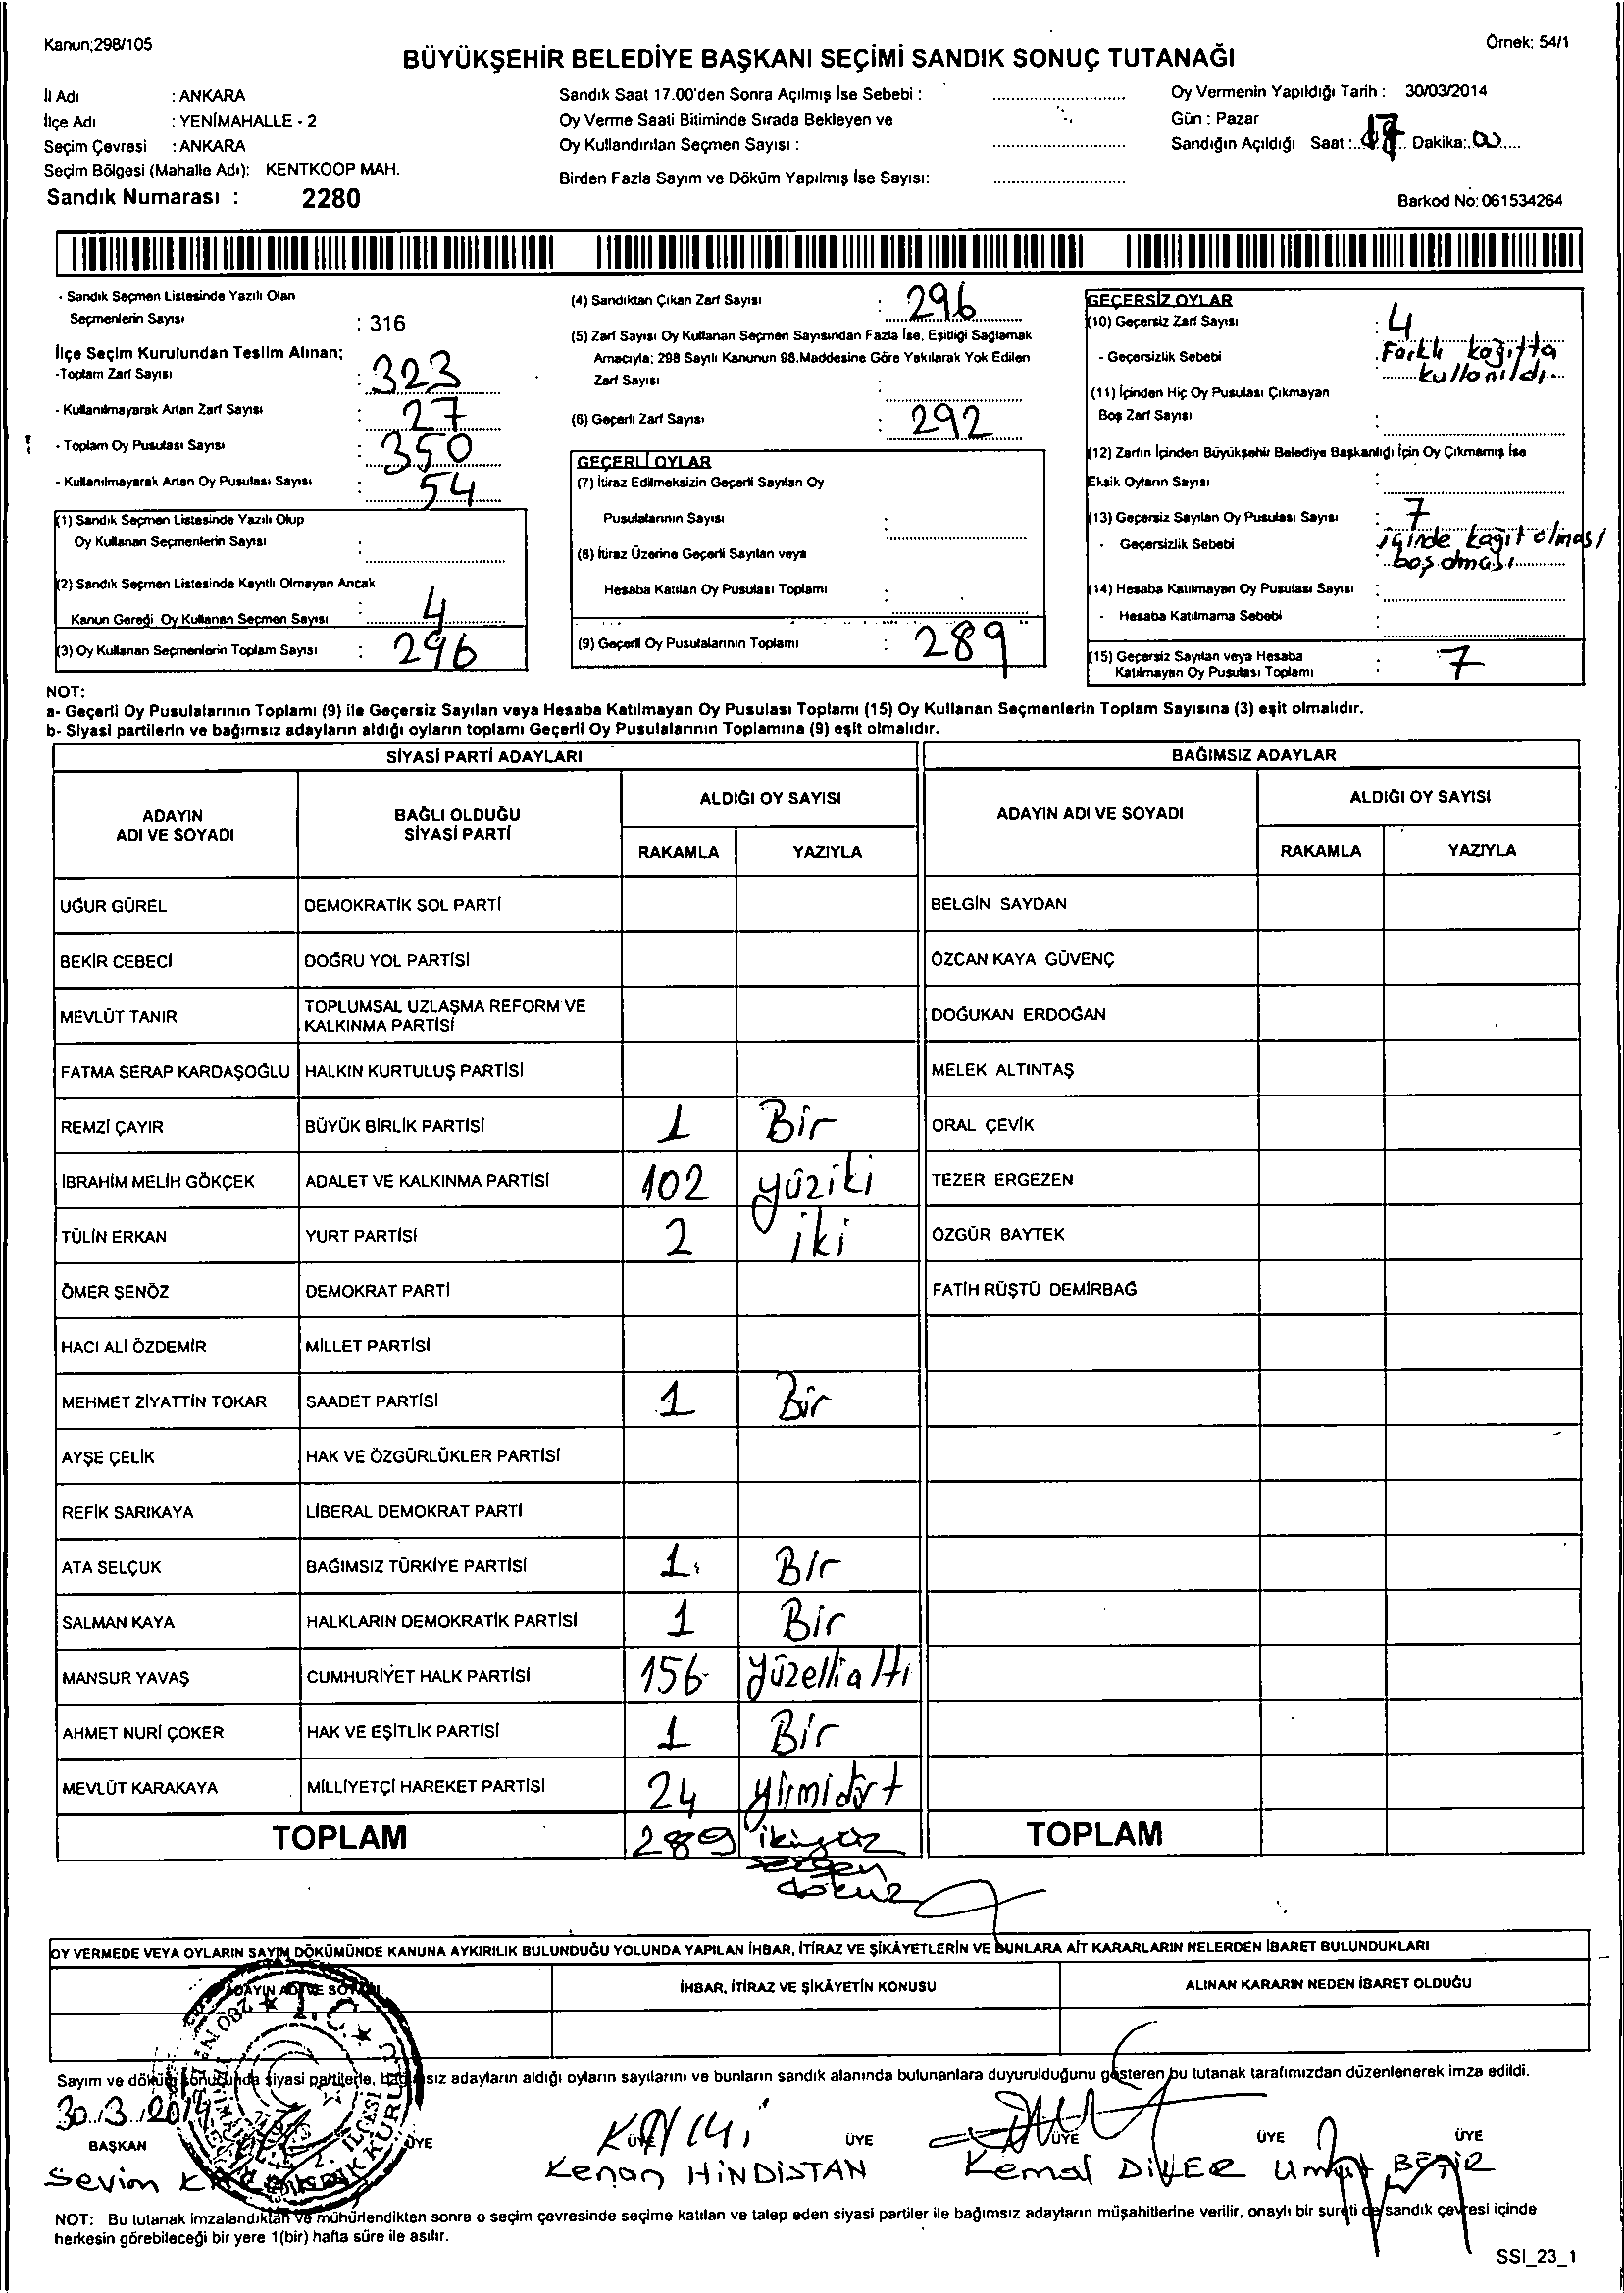 Kanun;298/105
Örnek: 54/1
BÜYÜKŞEHİR BELEDİYE BAŞKANI SEÇİMİ SANDIK SONUÇ TUTANAĞI
İl Adı : ANKARA
İlçe Adı : YENİMAHALLE - 2
Seçim Çevresi : ANKARA
Seçim Bölgesi (Mahalle Adı): KENTKOOP MAH.
Sandık Numarası : 2280
Sandık Saat 17.00'den Sonra Açılmış İse Sebebi :
Oy Verme Saati Bitiminde Sırada Bekleyen ve
Oy Kullandırılan Seçmen Sayısı :
Birden Fazla Sayım ve Döküm Yapılmış İse Sayısı:
Oy Vermenin Yapıldığı Tarih : 30/03/2014
Gün : Pazar
Sandığın Açıldığı Saat : 17 Dakika: 00
Barkod No: 061534264
- Sandık Seçmen Listesinde Yazılı Olan
Seçmenlerin Sayısı : 316
İlçe Seçim Kurulundan Teslim Alınan;
-Toplam Zarf Sayısı : 323
- Kullanılmayarak Artan Zarf Sayısı : 27
- Toplam Oy Pusulası Sayısı : 350
- Kullanılmayarak Artan Oy Pusulası Sayısı : 54
(1) Sandık Seçmen Listesinde Yazılı Olup
Oy Kullanan Seçmenlerin Sayısı :
(2) Sandık Seçmen Listesinde Kayıtlı Olmayan Ancak
Kanun Gereği Oy Kullanan Seçmen Sayısı : 4
(3) Oy Kullanan Seçmenlerin Toplam Sayısı : 296
(4) Sandıktan Çıkan Zarf Sayısı : 296
(5) Zarf Sayısı Oy Kullanan Seçmen Sayısından Fazla İse, Eşitliği Sağlamak
Amacıyla; 298 Sayılı Kanunun 98.Maddesine Göre Yakılarak Yok Edilen
Zarf Sayısı :
(6) Geçerli Zarf Sayısı : 292
GEÇERLİ OYLAR
(7) İtiraz Edilmeksizin Geçerli Sayılan Oy
Pusulalarının Sayısı :
(8) İtiraz Üzerine Geçerli Sayılan veya
Hesaba Katılan Oy Pusulası Toplamı :
(9) Geçerli Oy Pusulalarının Toplamı : 289
GEÇERSİZ OYLAR
(10) Geçersiz Zarf Sayısı : 4
- Geçersizlik Sebebi : Farklı kağıtta
kullanıldı
(11) İçinden Hiç Oy Pusulası Çıkmayan
Boş Zarf Sayısı :
(12) Zarfın İçinden Büyükşehir Belediye Başkanlığı İçin Oy Çıkmamış İse
Eksik Oyların Sayısı :
(13) Geçersiz Sayılan Oy Pusulası Sayısı : 7
- Geçersizlik Sebebi : içinde kağıt olması
boş olması
(14) Hesaba Katılmayan Oy Pusulası Sayısı :
- Hesaba Katılmama Sebebi :
(15) Geçersiz Sayılan veya Hesaba
Katılmayan Oy Pusulası Toplamı : 7
NOT:
a- Geçerli Oy Pusulalarının Toplamı (9) ile Geçersiz Sayılan veya Hesaba Katılmayan Oy Pusulası Toplamı (15) Oy Kullanan Seçmenlerin Toplam Sayısına (3) eşit olmalıdır.
b- Siyasi partilerin ve bağımsız adayların aldığı oyların toplamı Geçerli Oy Pusulalarının Toplamına (9) eşit olmalıdır.
SİYASİ PARTİ ADAYLARI
BAĞIMSIZ ADAYLAR
ADAYIN ADI VE SOYADI
BAĞLI OLDUĞU SİYASİ PARTİ
ALDIĞI OY SAYISI
RAKAMLA YAZIYLA
ADAYIN ADI VE SOYADI
ALDIĞI OY SAYISI
RAKAMLA YAZIYLA
UĞUR GÜREL DEMOKRATİK SOL PARTİ BELGİN SAYDAN
BEKİR CEBECİ DOĞRU YOL PARTİSİ ÖZCAN KAYA GÜVENÇ
MEVLÜT TANIR TOPLUMSAL UZLAŞMA REFORM VE KALKINMA PARTİSİ DOĞUKAN ERDOĞAN
FATMA SERAP KARDAŞOĞLU HALKIN KURTULUŞ PARTİSİ MELEK ALTINTAŞ
REMZİ ÇAYIR BÜYÜK BİRLİK PARTİSİ 1 Bir ORAL ÇEVİK
İBRAHİM MELİH GÖKÇEK ADALET VE KALKINMA PARTİSİ 102 yüziki TEZER ERGEZEN
TÜLİN ERKAN YURT PARTİSİ 2 iki ÖZGÜR BAYTEK
ÖMER ŞENÖZ DEMOKRAT PARTİ FATİH RÜŞTÜ DEMİRBAĞ
HACI ALİ ÖZDEMİR MİLLET PARTİSİ
MEHMET ZİYATTİN TOKAR SAADET PARTİSİ 1 Bir
AYŞE ÇELİK HAK VE ÖZGÜRLÜKLER PARTİSİ
REFİK SARIKAYA LİBERAL DEMOKRAT PARTİ
ATA SELÇUK BAĞIMSIZ TÜRKİYE PARTİSİ 1 Bir
SALMAN KAYA HALKLARIN DEMOKRATİK PARTİSİ 1 Bir
MANSUR YAVAŞ CUMHURİYET HALK PARTİSİ 156 yüzellialtı
AHMET NURİ ÇOKER HAK VE EŞİTLİK PARTİSİ 1 Bir
MEVLÜT KARAKAYA MİLLİYETÇİ HAREKET PARTİSİ 24 yirmidört
TOPLAM 289 ikiyüz TOPLAM
seksen
dokuz
OY VERMEDE VEYA OYLARIN SAYIM DÖKÜMÜNDE KANUNA AYKIRILIK BULUNDUĞU YOLUNDA YAPILAN İHBAR, İTİRAZ VE ŞİKÂYETLERİN VE BUNLARA AİT KARARLARIN NELERDEN İBARET BULUNDUKLARI
ADAYIN ADI VE SOYADI İHBAR, İTİRAZ VE ŞİKÂYETİN KONUSU ALINAN KARARIN NEDEN İBARET OLDUĞU
T.C.
Sayım ve döküm sonucunda siyasi partilerle, bağımsız adayların aldığı oyların sayılarını ve bunların sandık alanında bulunanlara duyurulduğunu gösteren bu tutanak tarafımızdan düzenlenerek imza edildi.
30/3/2014
BAŞKAN ÜYE ÜYE ÜYE ÜYE ÜYE ÜYE
Sevim Kenan HİNDİSTAN Kemal DİKER Umut
NOT: Bu tutanak imzalandıktan ve mühürlendikten sonra o seçim çevresinde seçime katılan ve talep eden siyasi partiler ile bağımsız adayların müşahitlerine verilir, onaylı bir sureti de sandık çevresi içinde
herkesin görebileceği bir yere 1(bir) hafta süre ile asılır.
SSI_23_1